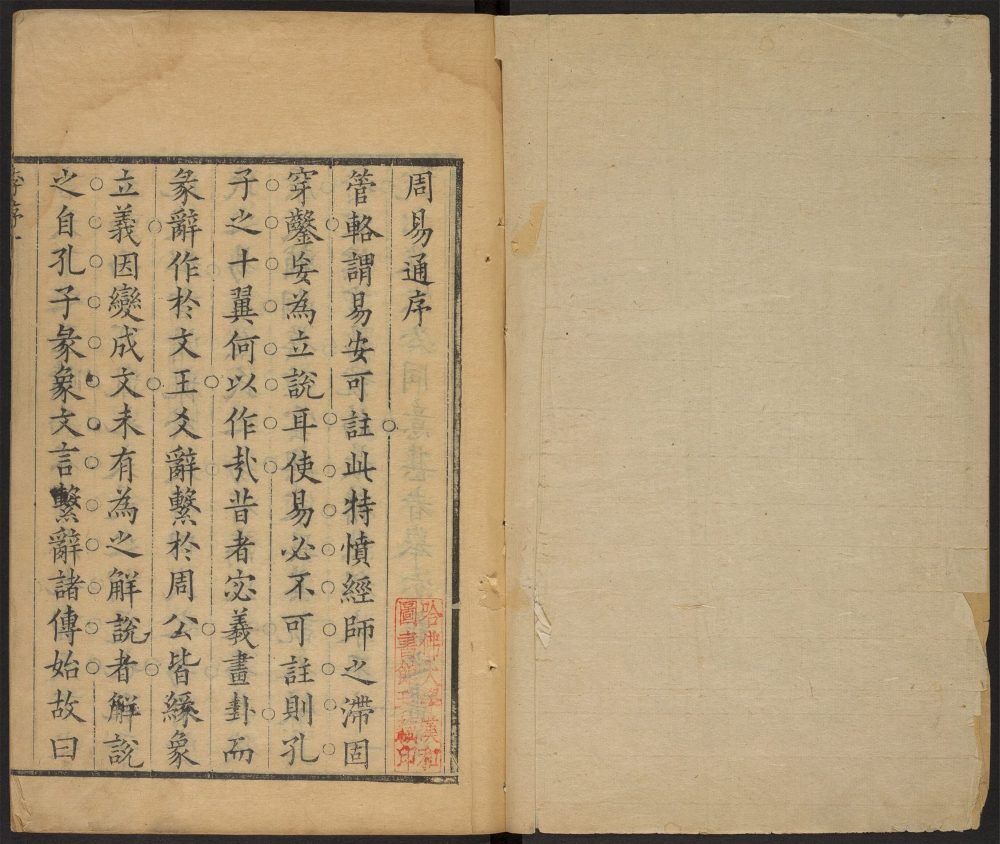 周易通序
管輅謂易安可註此特憤經師之滯固
穿鑿妄為立說耳使易必不可註則孔
子之十翼何以作哉昔者宓羲畫卦而
彖辭作於文王爻辭繫於周公皆緣象
立義因變成文未有為之解說者解說
之自孔子彖象文言繫辭諸傳始故曰
哈佛大學漢和
圖書館珍藏印